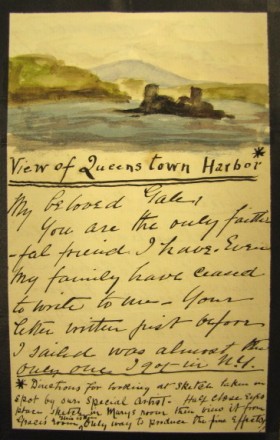 View of Queenstown Harbor*
My beloved Gale,
You are the only faith
-ful friend I have. Even
My family have ceased
to write to me - Your
letter written just before
I sailed was almost the
only one I got in N.Y.
* Directions for looking at sketch taken on
spot by our Special Artist - Half close Eyes
place sketch in Marys room then view it from
Gracies room, only way to produce the fine Effects